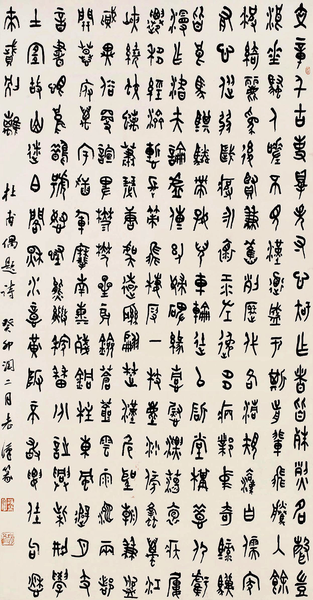 文章千古事得失寸心知作者皆殊列名聲豈
浪垂騷人嗟不見漢道盛於斯前輩飛騰入餘
波綺麗為後賢兼舊制歷代各清規法自儒家
有心從弱歲疲永懷江左逸多病鄴中奇騄驥
皆良馬騏驎帶好兒車輪徒已斲堂構惜仍虧
漫作潛夫論虛傳幼婦碑緣情慰漂蕩抱疾屢
遷移經濟慚長策飛棲假一枝塵沙傍蜂蠆江
峽繞蛟螭蕭瑟唐虞遠聯翩楚漢危聖朝兼盜
賊異俗更喧卑鬱鬱星辰劍蒼蒼雲雨池兩都
開幕府萬宇插軍麾南海殘銅柱東風避月支
音書恨烏鵲號怒怪熊羆稼穡分詩興柴荊學
土宜故山迷白閣秋水憶皇陂不敢要佳句愁
來賦別離
杜甫偶題詩 癸卯閏二月